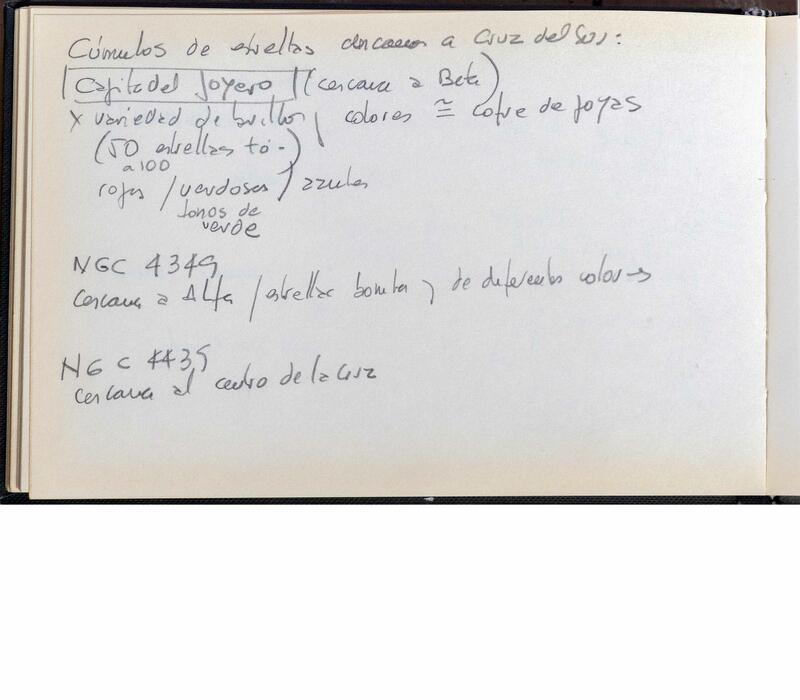 Cúmulos de estrellas cercanos a Cruz del Sur:
Cajita del Joyero (cercana a Beta)
x variedad de brillos, colores ≅ cofre de joyas
(50 estrellas
a 100
rojas / verdosas / azules
tonos de
verde
NGC 4349
cercana a Alfa / estrellas y de diferentes colores
NGC 4439
cercana al centro de la cruz